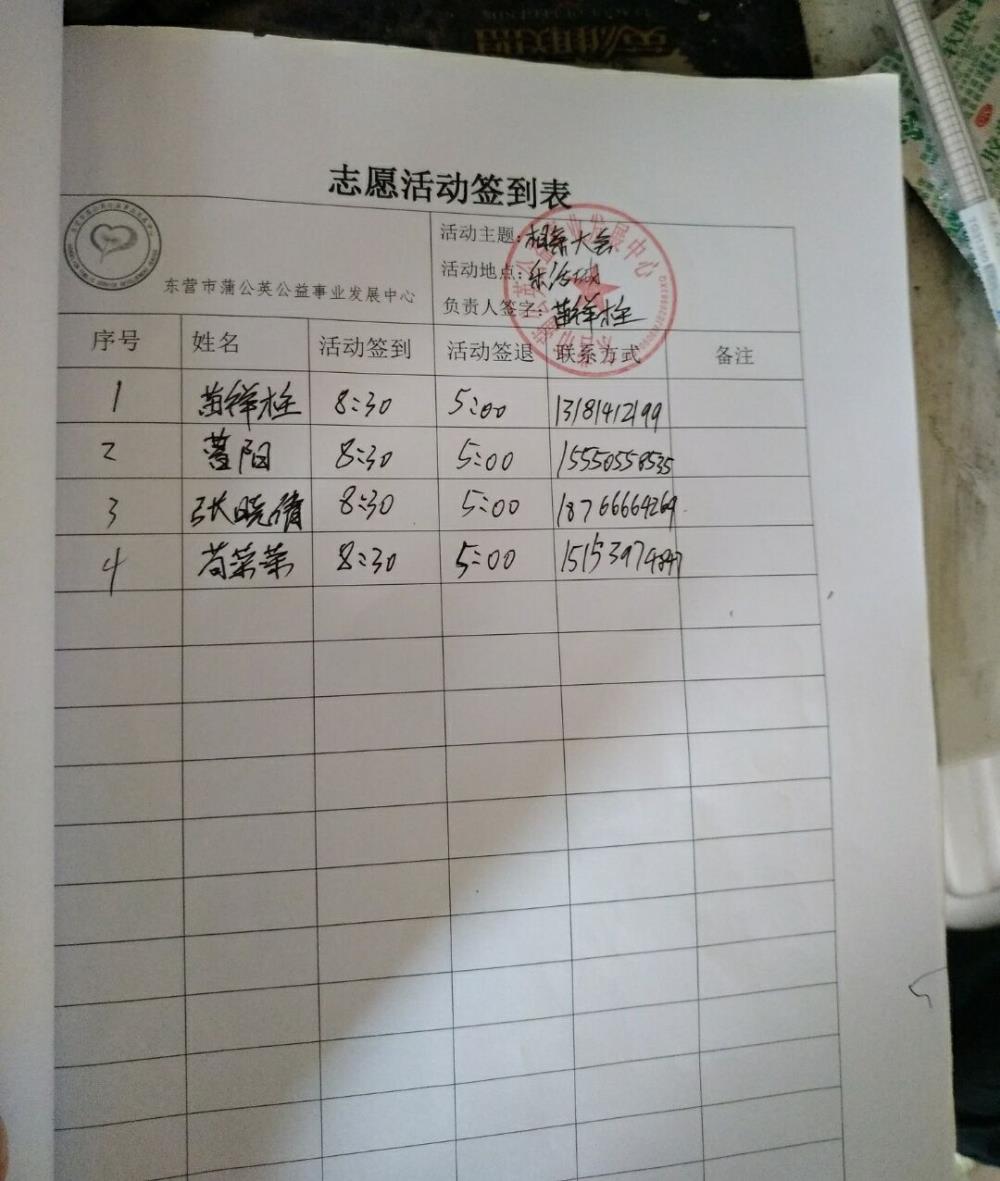 志愿活动签到表
东营市蒲公英公益事业发展中心
活动主题:相亲大会
活动地点:乐活城
负责人签字:苗祥栓
序号 姓名 活动签到 活动签退 联系方式 备注
1 苗祥栓 8:30 5:00 13181412199
2 8:30 5:00 15550558535
3 张晓倩 8:30 5:00 18766664269
4 苟荣荣 8:30 5:00